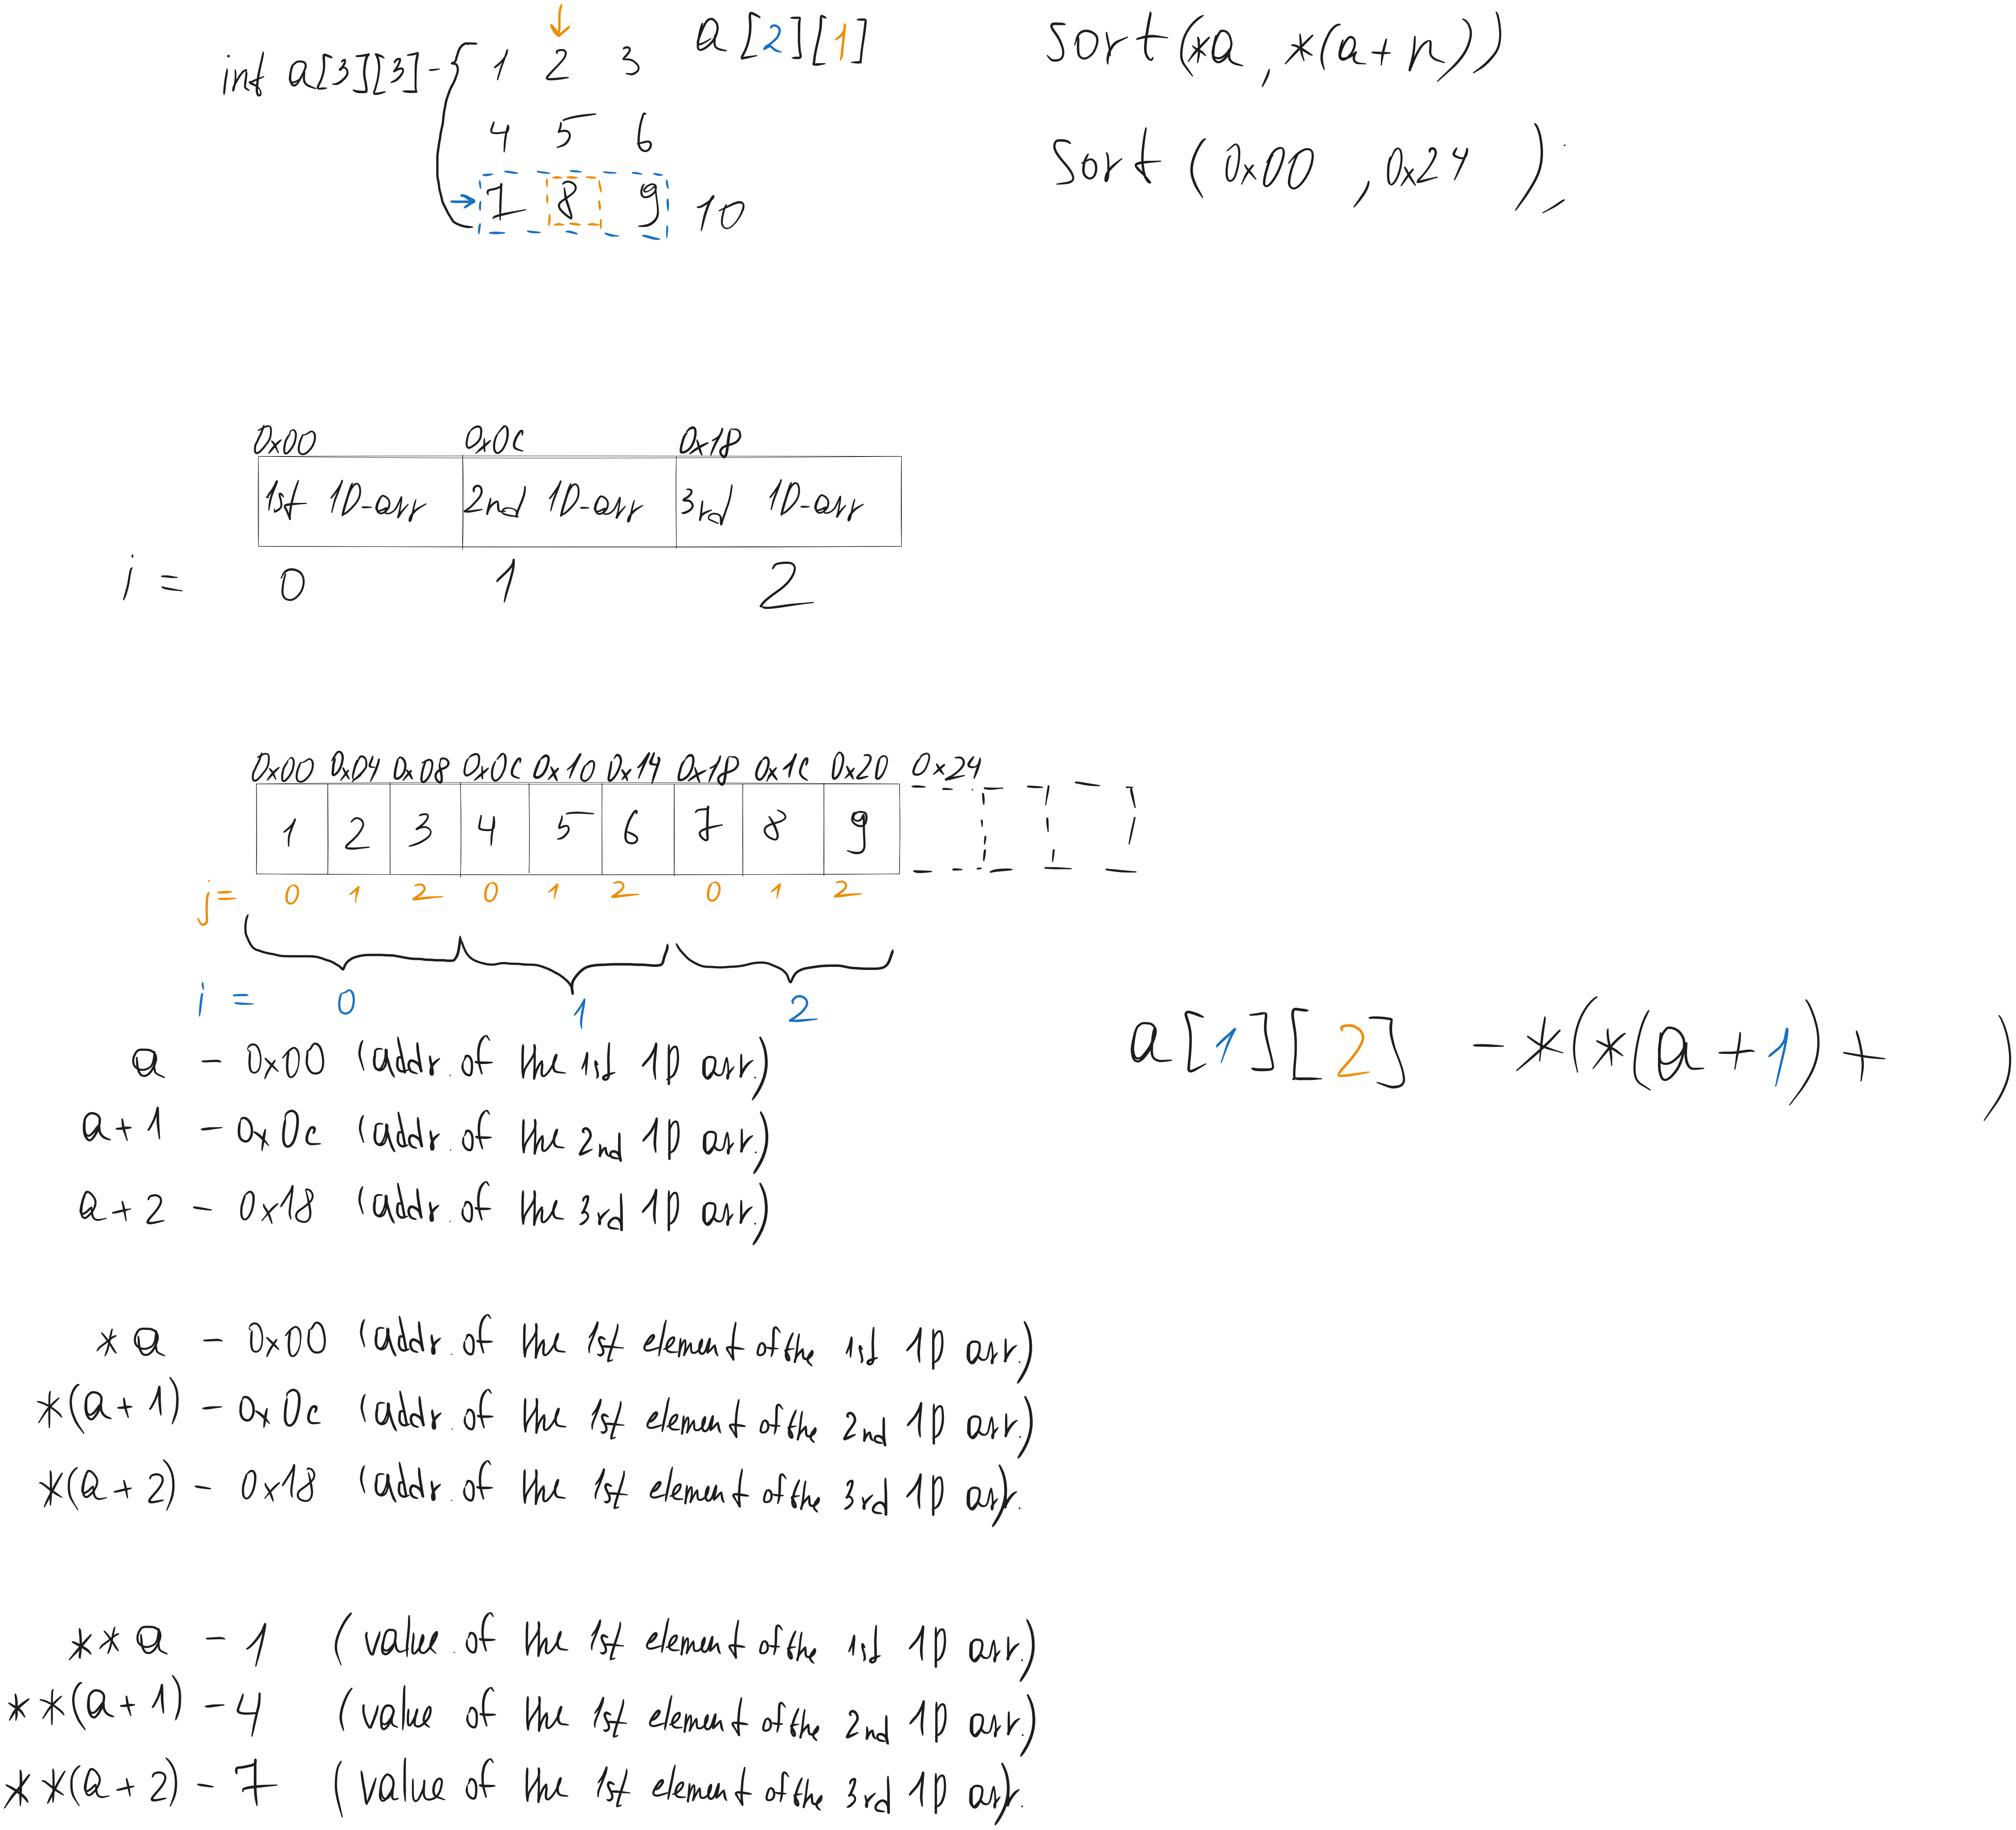 int a[3][3] - { 1 2 3 a[2][1] sort(*a, *(a+n))
4 5 6
7 8 9 10 sort(0x00, 0x24);
0x00 0x0c 0x18
1st 1D-arr 2nd 1D-arr 3rd 1D-arr
i = 0 1 2
0x00 0x04 0x08 0x0c 0x10 0x14 0x18 0x1c 0x20 0x24
1 2 3 4 5 6 7 8 9
j= 0 1 2 0 1 2 0 1 2
i = 0 1 2
a[1][2] - *(*(a+1)+ )
a - 0x00 (addr. of the 1st 1D arr.)
a+1 - 0x0c (addr. of the 2nd 1D arr.)
a+2 - 0x18 (addr. of the 3rd 1D arr.)
*a - 0x00 (addr. of the 1st element of the 1st 1D arr.)
*(a+1) - 0x0c (addr. of the 1st element of the 2nd 1D arr.)
*(a+2) - 0x18 (addr. of the 1st element of the 3rd 1D arr).
**a - 1 (value. of the 1st element of the 1st 1D arr.)
**(a+1) - 4 (value of the 1st element of the 2nd 1D arr.)
**(a+2) - 7 (value of the 1st element of the 3rd 1D arr).